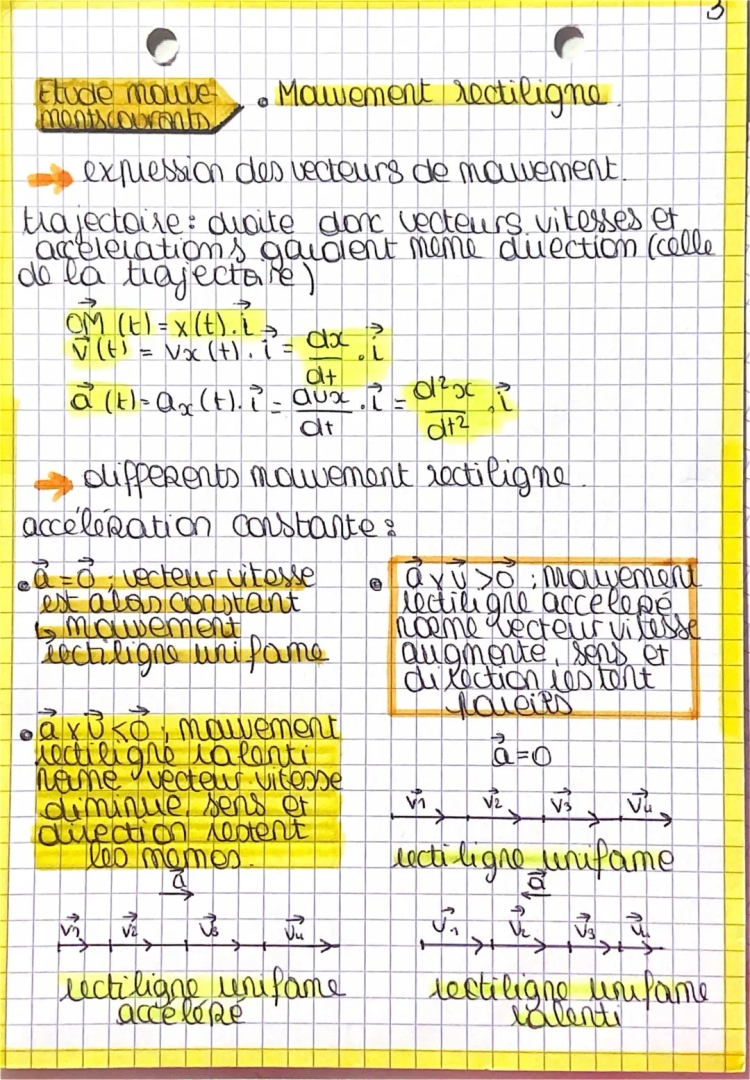 3
Etude mouve-
ments courants
• Mouvement rectiligne.
→ expression des vecteurs de mouvement.
trajectoire : droite donc vecteurs vitesses et
accélérations gardent meme direction (celle
de la trajectoire)
OM⃗ (t) = x(t). i⃗
v⃗ (t) = vx (t). i⃗ = dx/dt . i⃗
a⃗ (t) = ax (t). i⃗ = dvx/dt . i⃗ = d²x/dt² . i⃗
→ differents mouvement rectiligne.
accélération constante :
• a⃗ = 0⃗ ; vecteur vitesse
est alors constant
↳ mouvement
rectiligne uniforme
• a⃗ x v⃗ > 0⃗ ; mouvement
rectiligne acceleré
norme vecteur vitesse
augmente, sens et
direction restent
pareils
• a⃗ x v⃗ < 0⃗ ; mouvement
rectiligne ralenti
norme vecteur vitesse
diminue, sens et
direction restent
les memes.
a⃗ = 0
v⃗1 v⃗2 v⃗3 v⃗4
rectiligne uniforme
a⃗
v⃗1 v⃗2 v⃗3 v⃗4
rectiligne uniforme
acceleré
a⃗
v⃗1 v⃗2 v⃗3 v⃗4
rectiligne uniforme
ralenti